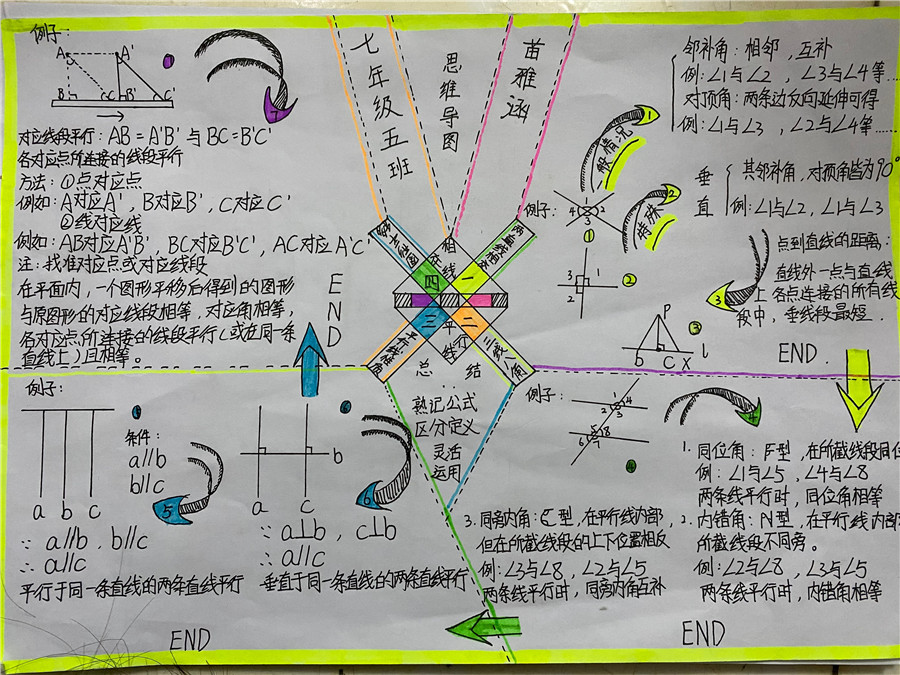 七年级五班
思维导图
苗雅涵
例子:
A A'
B C B' C'
对应线段平行: AB=A'B' 与 BC=B'C'
各对应点所连接的线段平行
方法: ①点对应点
例如: A对应A', B对应B', C对应C'
②线对应线
例如: AB对应A'B', BC对应B'C', AC对应A'C'
注: 找准对应点或对应线段
在平面内,一个图形平移后得到的图形
与原图形的对应线段相等,对应角相等,
各对应点所连接的线段平行(或在同一条
直线上)且相等。
END
相交线
平行线
四
一
三
二
三线八角
总结
熟记公式
区分定义
灵活
运用
邻补角: 相邻,互补
例: ∠1与∠2 , ∠3与∠4等……
对顶角: 两条边反向延伸可得
例: ∠1与∠3 , ∠2与∠4等……
一般情况
1
例子:
4 1 2
3
①
特殊
2
垂直
其邻补角,对顶角皆为90°
例: ∠1与∠2, ∠1与∠3
3 1
2
②
点到直线的距离:
直线外一点与直线
上各点连接的所有线
段中,垂线段最短.
3
P
③
b C X l
END
例子:
a b c
⑤
条件:
a∥b
b∥c
5
∵ a∥b, b∥c
∴ a∥c
平行于同一条直线的两条直线平行
END
⑥
b
a c
6
∵ a⊥b , c⊥b
∴ a∥c
垂直于同一条直线的两条直线平行
例子:
1
2 4
3
5
6 8
7
④
4
1. 同位角: F型, 在所截线段同位
例: ∠1与∠5 , ∠4与∠8
两条线平行时,同位角相等
2. 内错角: N型,在平行线内部
所截线段不同旁。
例: ∠2与∠8 , ∠3与∠5
两条线平行时,内错角相等
3. 同旁内角: C型,在平行线内部,
但在所截线段的上下位置相反
例: ∠3与∠8 , ∠2与∠5
两条线平行时,同旁内角互补
END